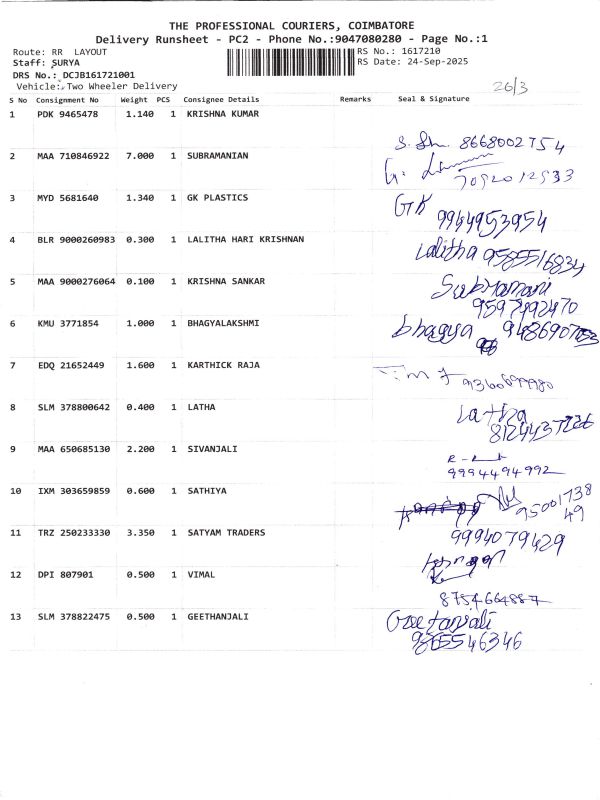 THE PROFESSIONAL COURIERS, COIMBATORE
Delivery Runsheet - PC2 - Phone No.:9047080280 - Page No.:1
Route: RR LAYOUT
RS No.: 1617210
Staff: SURYA
RS Date: 24-Sep-2025
DRS No.: DCJB161721001
Vehicle: Two Wheeler Delivery
26/3
S No Consignment No Weight PCS Consignee Details Remarks Seal & Signature
1 PDK 9465478 1.140 1 KRISHNA KUMAR
8668002754
2 MAA 710846922 7.000 1 SUBRAMANIAN
3 MYD 5681640 1.340 1 GK PLASTICS
GK
9944953954
4 BLR 9000260983 0.300 1 LALITHA HARI KRISHNAN
Lalitha 9585516834
5 MAA 9000276064 0.100 1 KRISHNA SANKAR
Subramani
9597492470
6 KMU 3771854 1.000 1 BHAGYALAKSHMI
bhagya
7 EDQ 21652449 1.600 1 KARTHICK RAJA
8 SLM 378800642 0.400 1 LATHA
Latha
9 MAA 650685130 2.200 1 SIVANJALI
9994494992
10 IXM 303659859 0.600 1 SATHIYA
9500173849
11 TRZ 250233330 3.350 1 SATYAM TRADERS
9994079429
12 DPI 807901 0.500 1 VIMAL
8754664887
13 SLM 378822475 0.500 1 GEETHANJALI
Geetanjali
9865546346